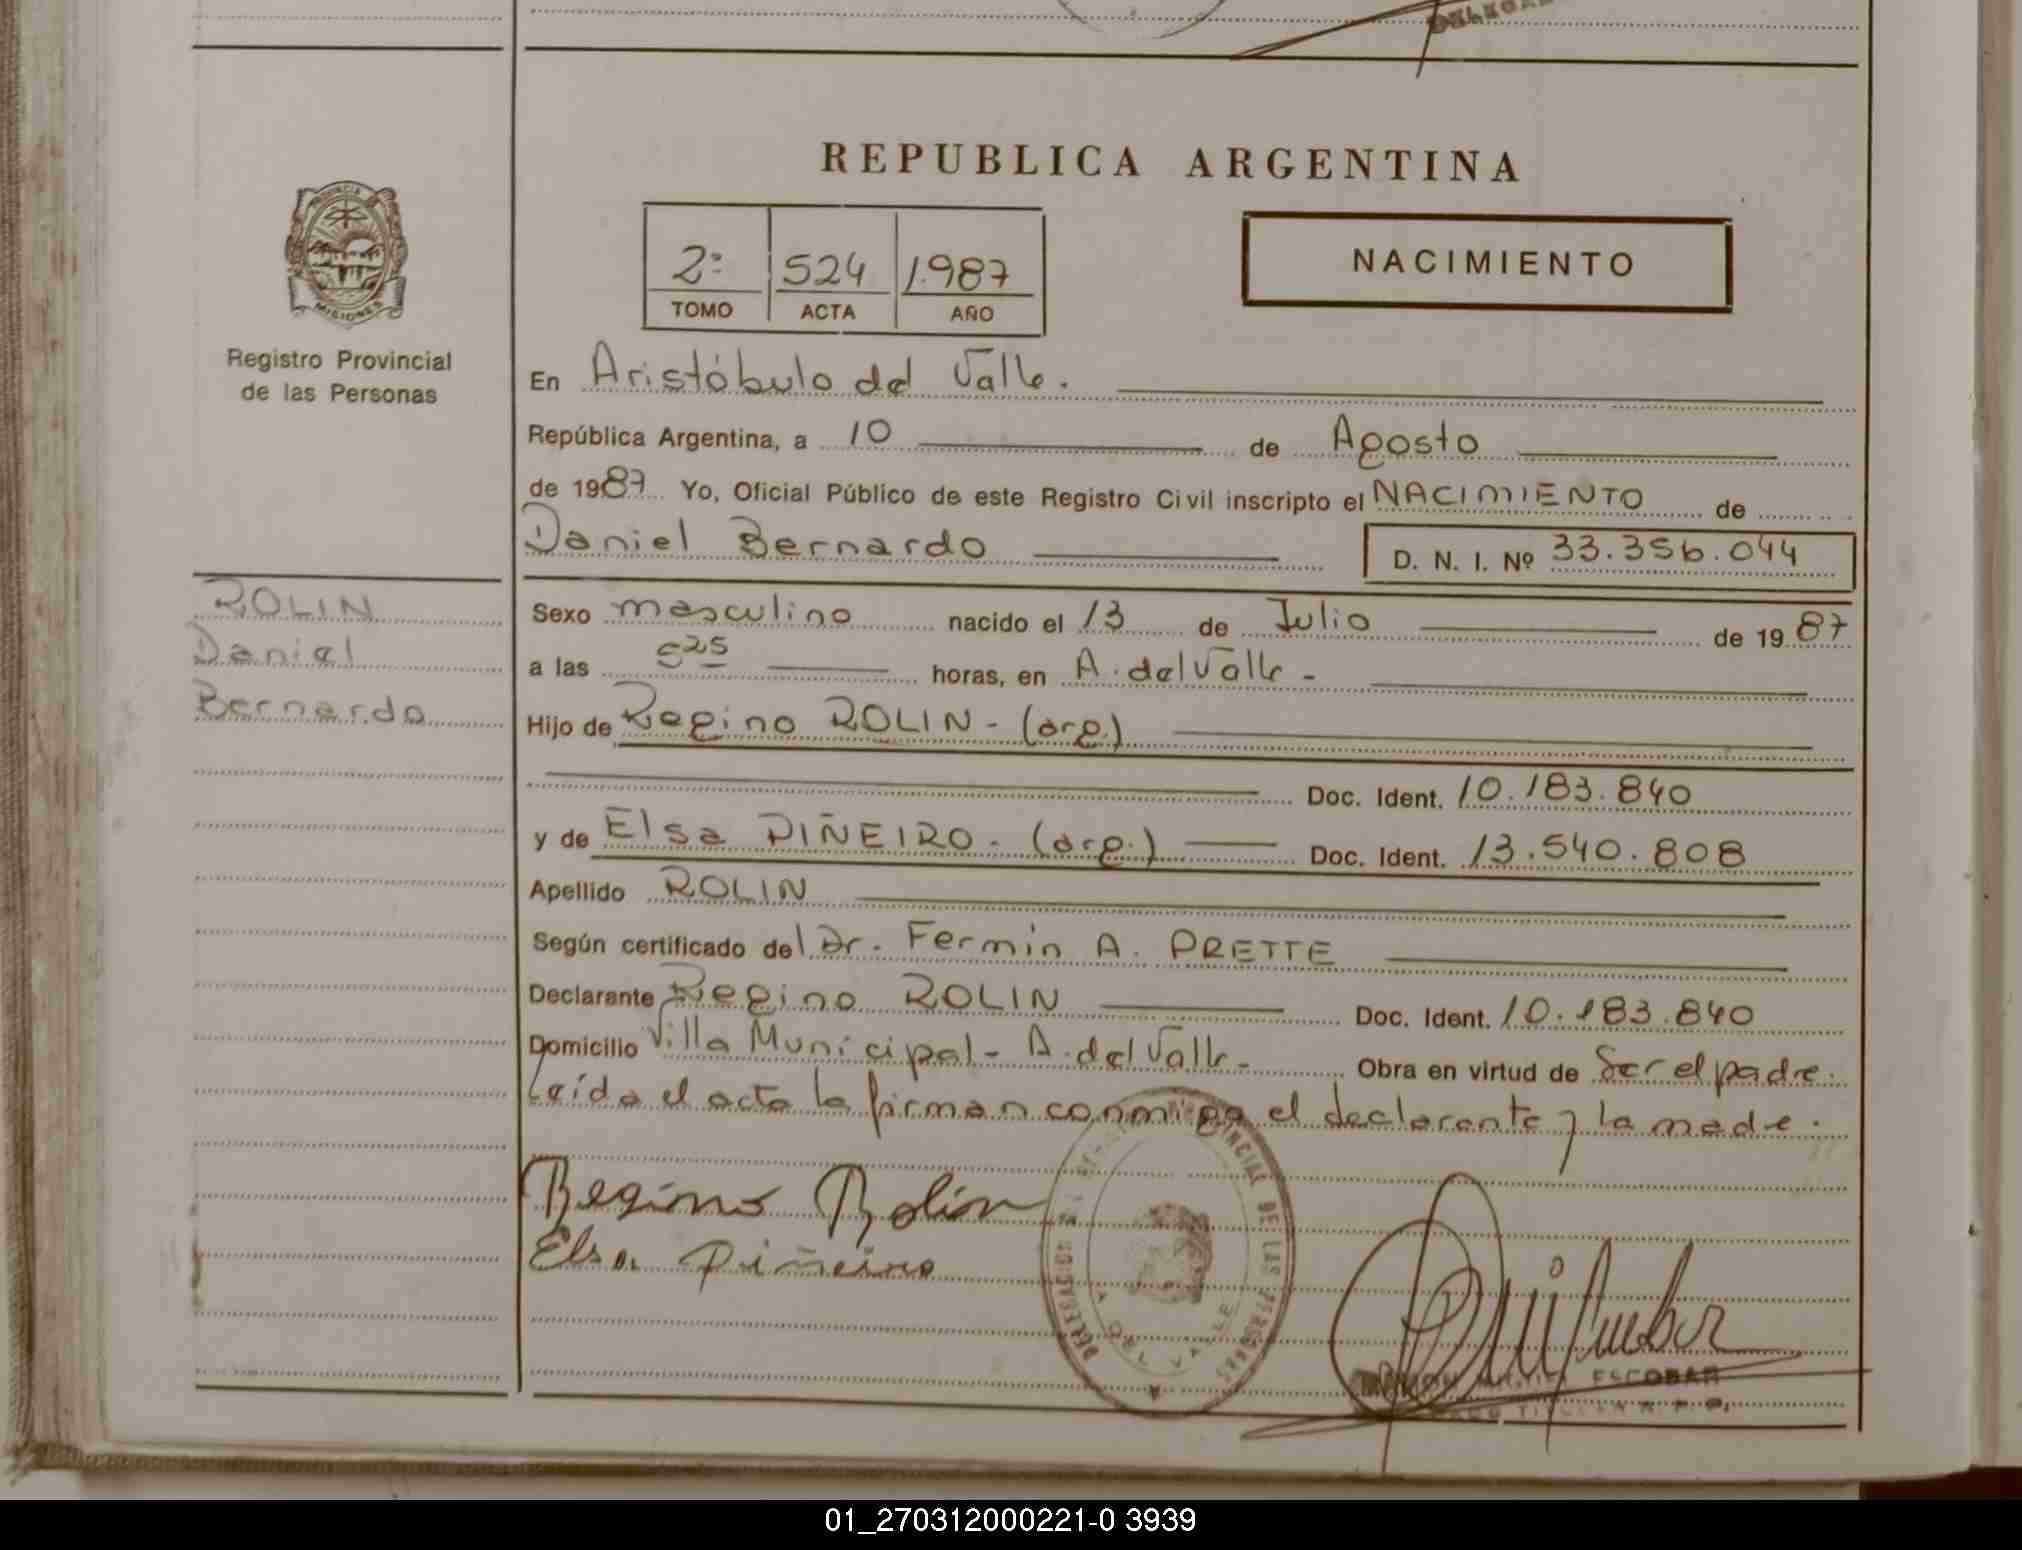 REPUBLICA ARGENTINA
2º 524 1.987
TOMO ACTA AÑO
NACIMIENTO
PROVINCIA
MISIONES
Registro Provincial
de las Personas
En Aristóbulo del Valle.
República Argentina, a 10 de Agosto
de 1987 Yo, Oficial Público de este Registro Civil inscripto el NACIMIENTO de
Daniel Bernardo D. N. I. Nº 33.356.044
ROLIN
Daniel
Bernardo
Sexo masculino nacido el 13 de Julio de 1987
a las horas, en A. del Valle -
Hijo de Regino ROLIN - (arg.)
Doc. Ident. 10.183.840
y de Elsa PIÑEIRO - (arg.) Doc. Ident. 13.540.808
Apellido ROLIN
Según certificado del Dr. Fermín A. PRETTE
Declarante Regino ROLIN Doc. Ident. 10.183.840
Domicilio Villa Municipal - A. del Valle - Obra en virtud de ser el padre.
Leída el acta la firman conmigo el declarante y la madre.
Regino Rolin
Elsa Piñeiro
DE LAS PERSONAS
A. DEL VALLE
ESCOBAR
01_270312000221-0 3939